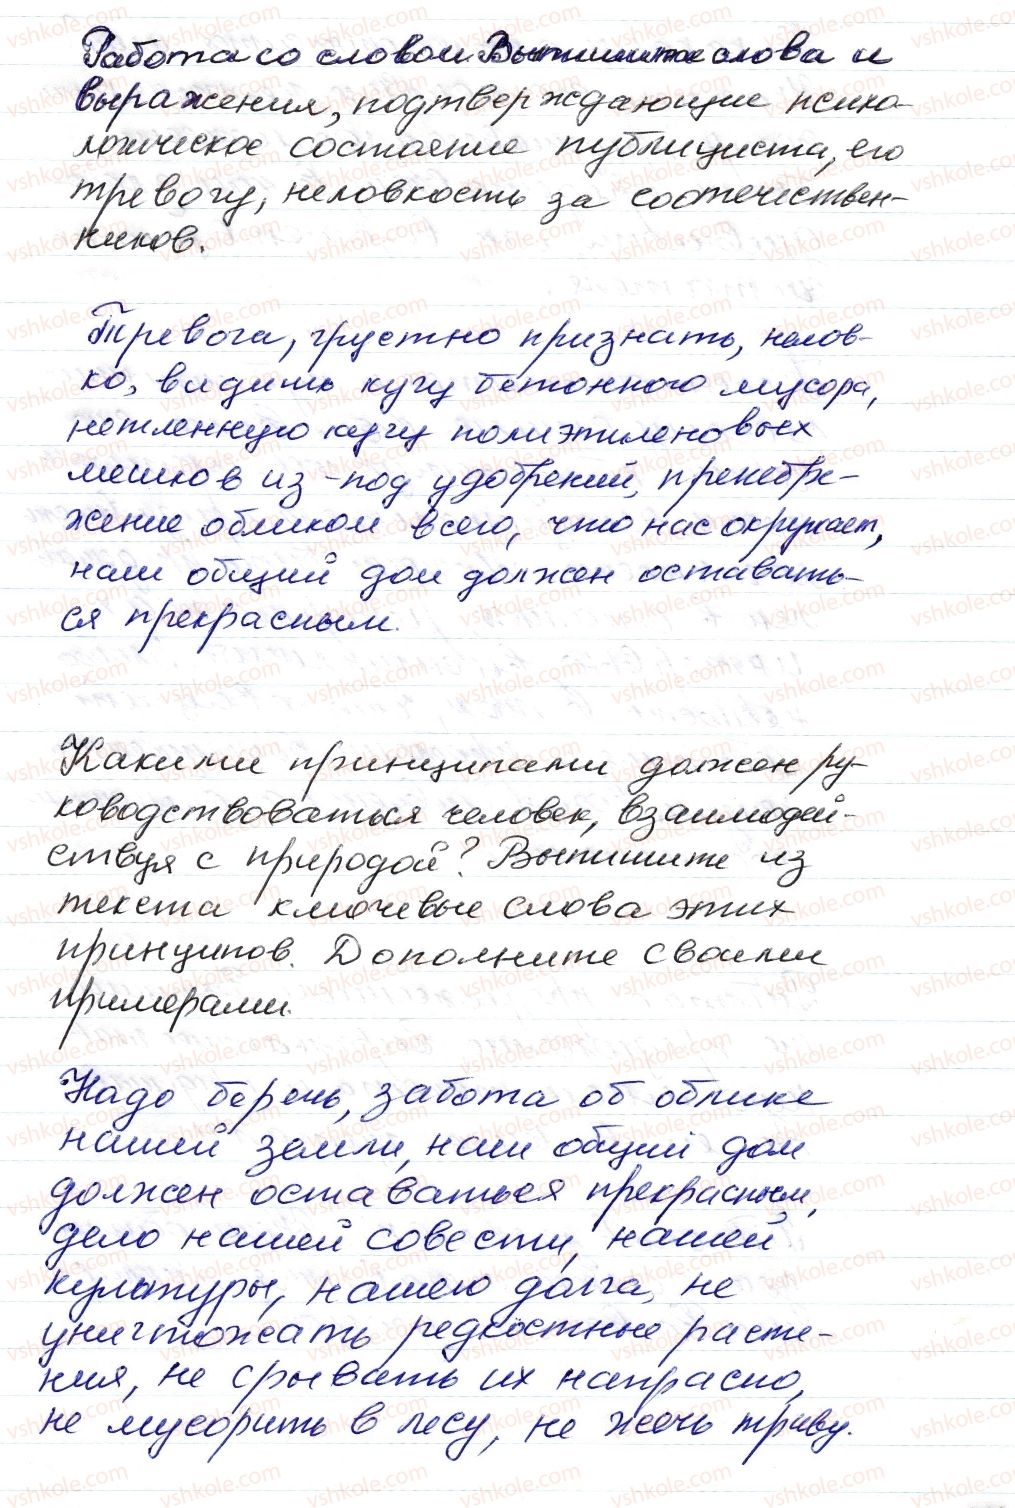 Работа со словом. Выпишите слова и
выражения, подтверждающие психо-
логическое состояние публициста, его
тревогу, неловкость за соотечествен-
ников.
Тревога, грустно признать, нелов-
ко, видить кучу бетонного мусора,
нетленную кучу полиэтиленовых
мешков из-под удобрений, пренебре-
жение обликом всего, что нас окружает,
наш общий дом должен оставать-
ся прекрасным.
Какими принципами должен ру-
ководствоваться человек, взаимодей-
ствуя с природой? Выпишите из
текста ключевые слова этих
принципов. Дополните своими
примерами.
Надо беречь, забота об облике
нашей земли, наш общий дом
должен оставаться прекрасным,
дело нашей совести, нашей
культуры, нашего долга, не
уничтожать редкостные расте-
ния, не срывать их напрасно,
не мусорить в лесу, не жечь траву.